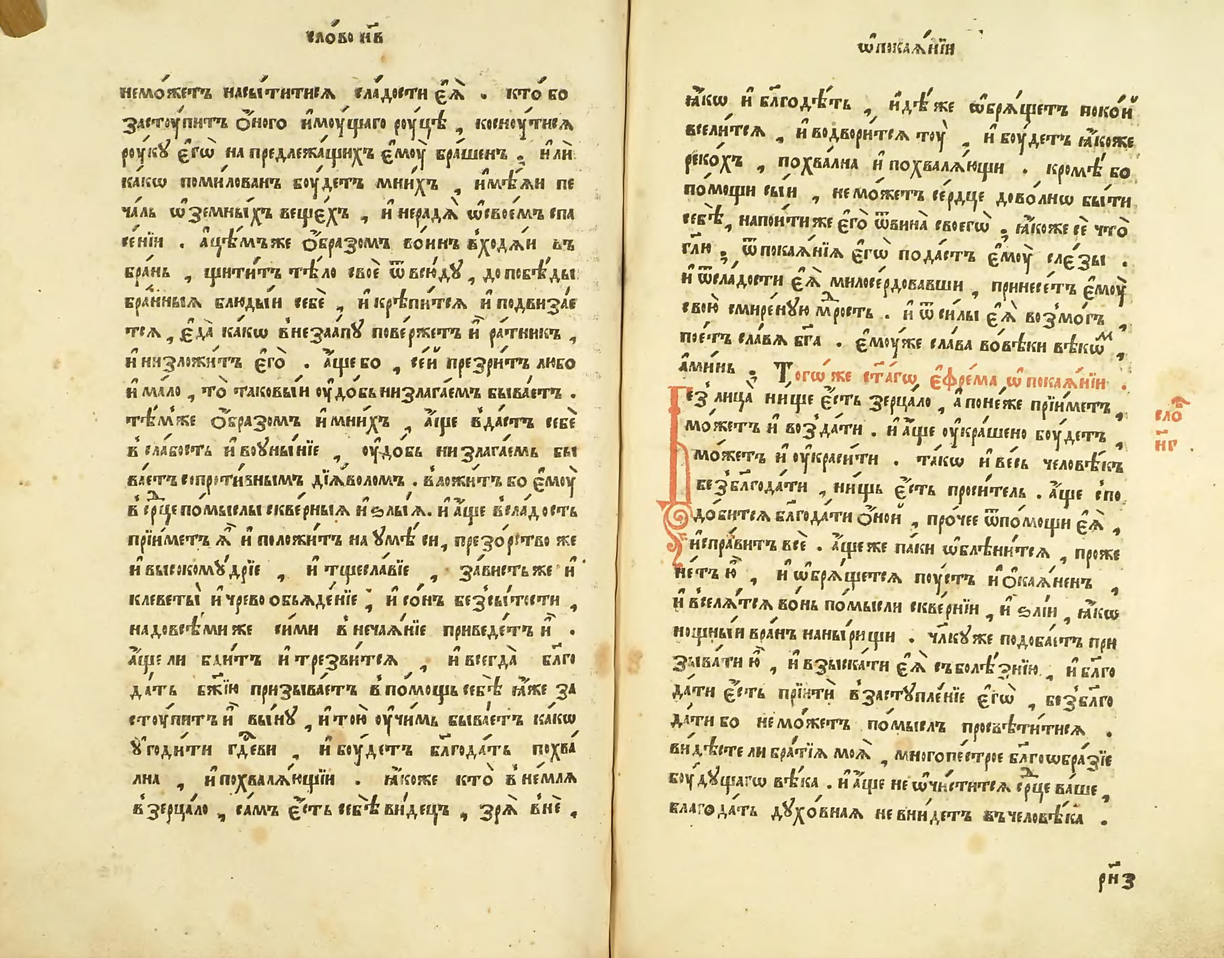 сло́во н҃в
немо́жетъ насы́титисѧ сла́дости є҆ѧ̀ . кто́ бо
застоу́питъ ѻ҆́ного и҆моу́щаго роу́цѣ , косноу́тисѧ
роукꙋ̀ є҆гѡ̀ на предлежа́щихъ є҆моу̀ бра́шенъ ; и҆лѝ
ка́кѡ поми́лованъ боу́детъ мни́хъ , и҆мѣ́ѧи пе
ча́ль ѡ҆ земны́хъ веще́хъ , и҆ нерадѧ̀ ѡ҆своє́мъ спа
се́нїи . а҆ цѣ́мъже ѻ҆́бразомъ во́инъ входѧ́и въ
бра́нь , щити́тъ тѣ́ло своѐ ѿвсю́дꙋ , до побѣ́ды
бра́нныѧ блюды́и себѐ , и҆ крѣ́питсѧ и҆ подвиза́е
тсѧ , є҆да̀ ка́кѡ внеза́апꙋ пове́ржетъ и҆̀ ра́тникъ ,
и҆ низложи́тъ є҆го̀ . а҆́ще бо , се́й презри́тъ любо
и҆ ма́ло , то̀ таковы́и оу҆до́бь низлага́емъ быва́етъ .
тѣ́мже ѻ҆́бразомъ и҆ мни́хъ , а҆́ще вда́стъ себѐ
в сла́бость и҆ воуны́нїе , оу҆до́бь низлага́емь бы
ва́етъ сопроти́внымъ дїѧ́воломъ . вложи́тъ бо є҆моу̀
в ср҃це по́мыслы скве́рныѧ и҆ ѕлы́ѧ . и҆ а҆́ще всла́дость
прїи́метъ ѧ҆̀ и҆ положи́тъ на оу҆мѣ̀ си , презо́рство же
и҆ высокомꙋ́дрїе , и҆ тщесла́вїе , за́висть же и҆
клеветы̀ и҆ чрево обьѧде́нїе , и҆ со́нъ безсы́тости ,
надовсѣ́ми же си́ми в неча́ѧнїе приведе́тъ и҆̀ .
а҆́ще ли бди́тъ и҆ трезви́тсѧ , и҆ всегда̀ бл҃го
да́ть бж҃їю призыва́етъ в по́мощь себѣ̀ ꙗ҆́же за
стоу́питъ и҆̀ вы́нꙋ , и҆ то́ю оу҆чи́мь быва́етъ ка́кѡ
оу҆годи́ти гд҇еви , и҆ боу́детъ бл҃года́ть похва́
лна , и҆ похвалѧ́ющїи . ꙗ҆́коже кто̀ в не́млѧ
в зерца́ло , са́мъ є҆́сть себѣ̀ ви́децъ , зрѧ̀ в нѐ ,
ѡ҆ покаѧ́нїи
ꙗ҆́кѡ и҆ бл҃года́ть , и҆дѣ́ же ѡ҆брѧ́щетъ поко́й
всели́тсѧ , и҆ водвори́тсѧ тоу̀ , и҆ боу́детъ ꙗ҆́коже
реко́хъ , похва́лна и҆ похвалѧ́ющи . кромѣ́ бо
по́мощи сыи , не мо́жетъ се́рдце дово́лнѡ бы́ти
себѣ̀ , напои́тиже є҆го̀ ѿвина̀ своегѡ̀ ; ꙗ҆́коже сѐ что̀
гл҃ю ; ѿ покаѧ́нїѧ є҆гѡ̀ пода́стъ є҆моу̀ сле́зы .
и҆ ѿсла́дости є҆ѧ̀ милосе́рдовавши , принесе́тъ є҆моу̀
свою̀ смире́нꙋю мⷣрость . и҆ ѿ си́лы є҆ѧ̀ возмо́гъ ,
пое́тъ сла́вѧ бг҃а . є҆моу́же сла́ва во вѣ́ки вѣкѡ́м ,
а҆ми́нь . Тогѡ́ же ст҃а́гѡ є҆фре́ма ѡ҆ покаѧ́нїи .
сло́ н҃г
Без̾ лица̀ ни́ще є҆́сть зерца́ло , а҆ поне́же прїи́метъ ,
мо́жетъ и҆ воз̾да́ти . и҆ а҆́ще оу҆кра́шено боу́детъ ,
мо́жетъ и҆ оу҆кра́сити . та́кѡ и҆ ве́сь человѣ́къ
без̾ бл҃года́ти , ни́щь є҆́сть проси́тель . а҆́ще спо
до́битсѧ бл҃года́ти ѻ҆́ной , про́чее ѿпо́мощи є҆ѧ̀ ,
и҆спра́витъ всѐ . а҆́ще же па́ки ѡ҆блѣни́тсѧ , проже
не́тъ ю҆̀ , и҆ ѡ҆брѧ́щетсѧ поу́стъ и҆ ѻ҆каѧ́ненъ
и҆ вселѧ́тсѧ во́нь по́мысли скве́рнїи , и҆ ѕлі́и , ꙗ҆́кѡ
нощны́и вра́нъ на ны́рищи . чл҃кꙋ́ же подоба́етъ при
зыва́ти ю҆̀ , и҆ взыска́ти є҆ѧ̀ съ болѣ́знїю , и҆ бл҃го
да́ти є҆́сть прїи́ти в застꙋпле́нїе є҆гѡ̀ , без̾ бл҃го
да́ти бо не мо́жетъ по́мыслъ просвѣти́тисѧ .
ви́дѣсте ли бра́тїѧ моѧ̀ , многопе́строе бл҃гоѡбра́зїе
боу́дꙋщагѡ вѣ́ка . и҆ а҆́ще не ѡ҆чи́ститсѧ ср҃це ва́ше ,
благода́ть дꙋхо́внаѧ не вни́детъ въ человѣ́ка .
рн҃з